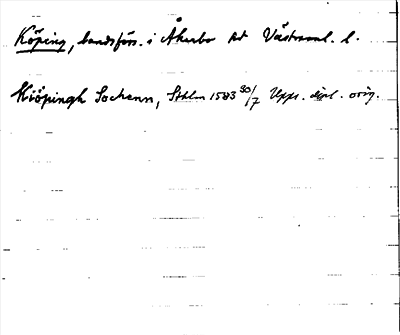 Köping, landsförs. i Åkerbo hd Västmanl. l.
Kiöpingh Sochenn, Sthlm 1583 30/7 Upps. dipl. orig.